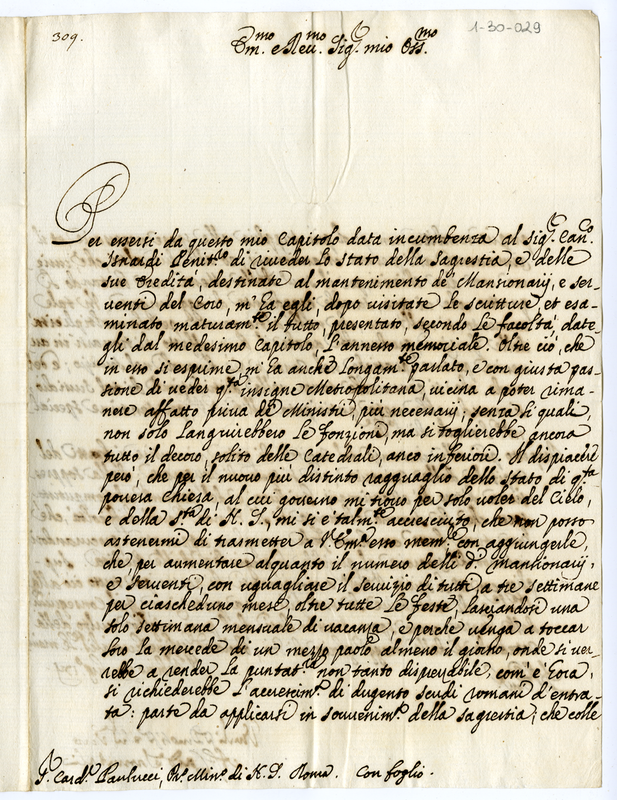 309.
1-30-029
Em.mo e Reu.mo Sig.r mio Oss.mo
Per essersi da questo mio Capitolo data incumbenza al sig.r Can.co
Isnardi Penit.re di riueder lo stato della sagrestia, e delle
sue Eredità, destinate al mantenimento de Mansionarij, e ser-
uenti del Coro, m'ha egli, dopo visitate le scritture, et esa-
minato maturam.te il tutto, presentato, secondo le facoltà date-
gli dal medesimo Capitolo, l'annesso memoriale. Oltre ciò, che
in esso si esprime, m'ha anche longam.te parlato, e con giusta pas-
sione di veder q.ta insigne Metropolitana, vicina a poter rima-
nere affatto priua de Ministri, più necessarij; senza li quali,
non solo languirebbero le fonzioni, ma si toglierebbe ancora
tutto il decoro, solito delle Catedrali, anco inferiori. Il dispiacere
però, che per il nuouo più distinto ragguaglio dello stato di q.ta
pouera Chiesa, al cui gouerno mi trouo per solo voler del Cielo,
e della S.tà di N. S., mi si è talm.te accresciuto, che non posso
astenermi di trasmetter a V. Em.za esso mem.le con aggiungerle,
che, per aumentare alquanto il numero delli d.i mansionarij,
e seruenti, con uguagliare il seruizio di tutti, a tre settimane
per ciascheduno mese, oltre tutte le feste, lasciandosi una
sola settimana mensuale di vacanza, e perche venga a toccar
loro la mercede di un mezzo paolo almeno il giorno, onde si ver-
rebbe a render la puntat.ra non tanto disprezabile, com'è hora,
si richiederebbe l'accrescim.to di dugento scudi romani d'entra-
ta: parte da applicarsi in souuenim.to della sagrestia, che colle
S.r Card.l Paulucci, Pr.o Min.o di N. S. Roma. Con foglio.